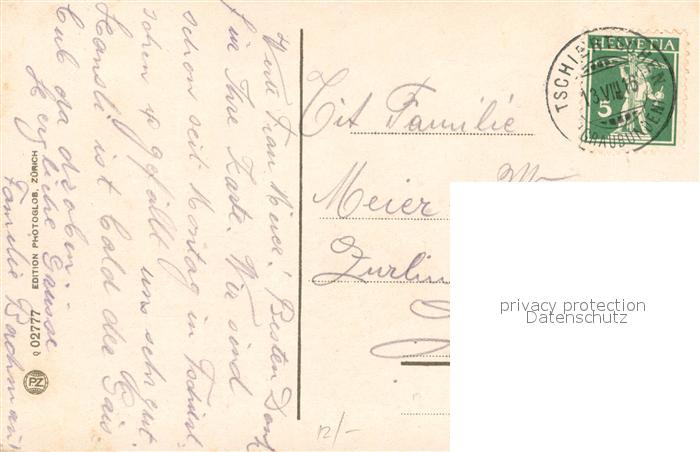 Werte Frau Meier! Besten Dank
für Ihre Karte. Wir sind
schon seit Montag in Tschiert-
schen & gefällt uns sehr gut.
Hansli ist bald der Gais-
bub da droben.
Herzliche Grüsse
Familie Bachmann
EDITION PHOTOGLOB, ZÜRICH
Q 02777
PZ
Tit Familie
Meier
Zurlin
12/-
HELVETIA
5
TSCHIERTSCHEN
13.VIII.
(GRAUBÜNDEN)
privacy protection
Datenschutz